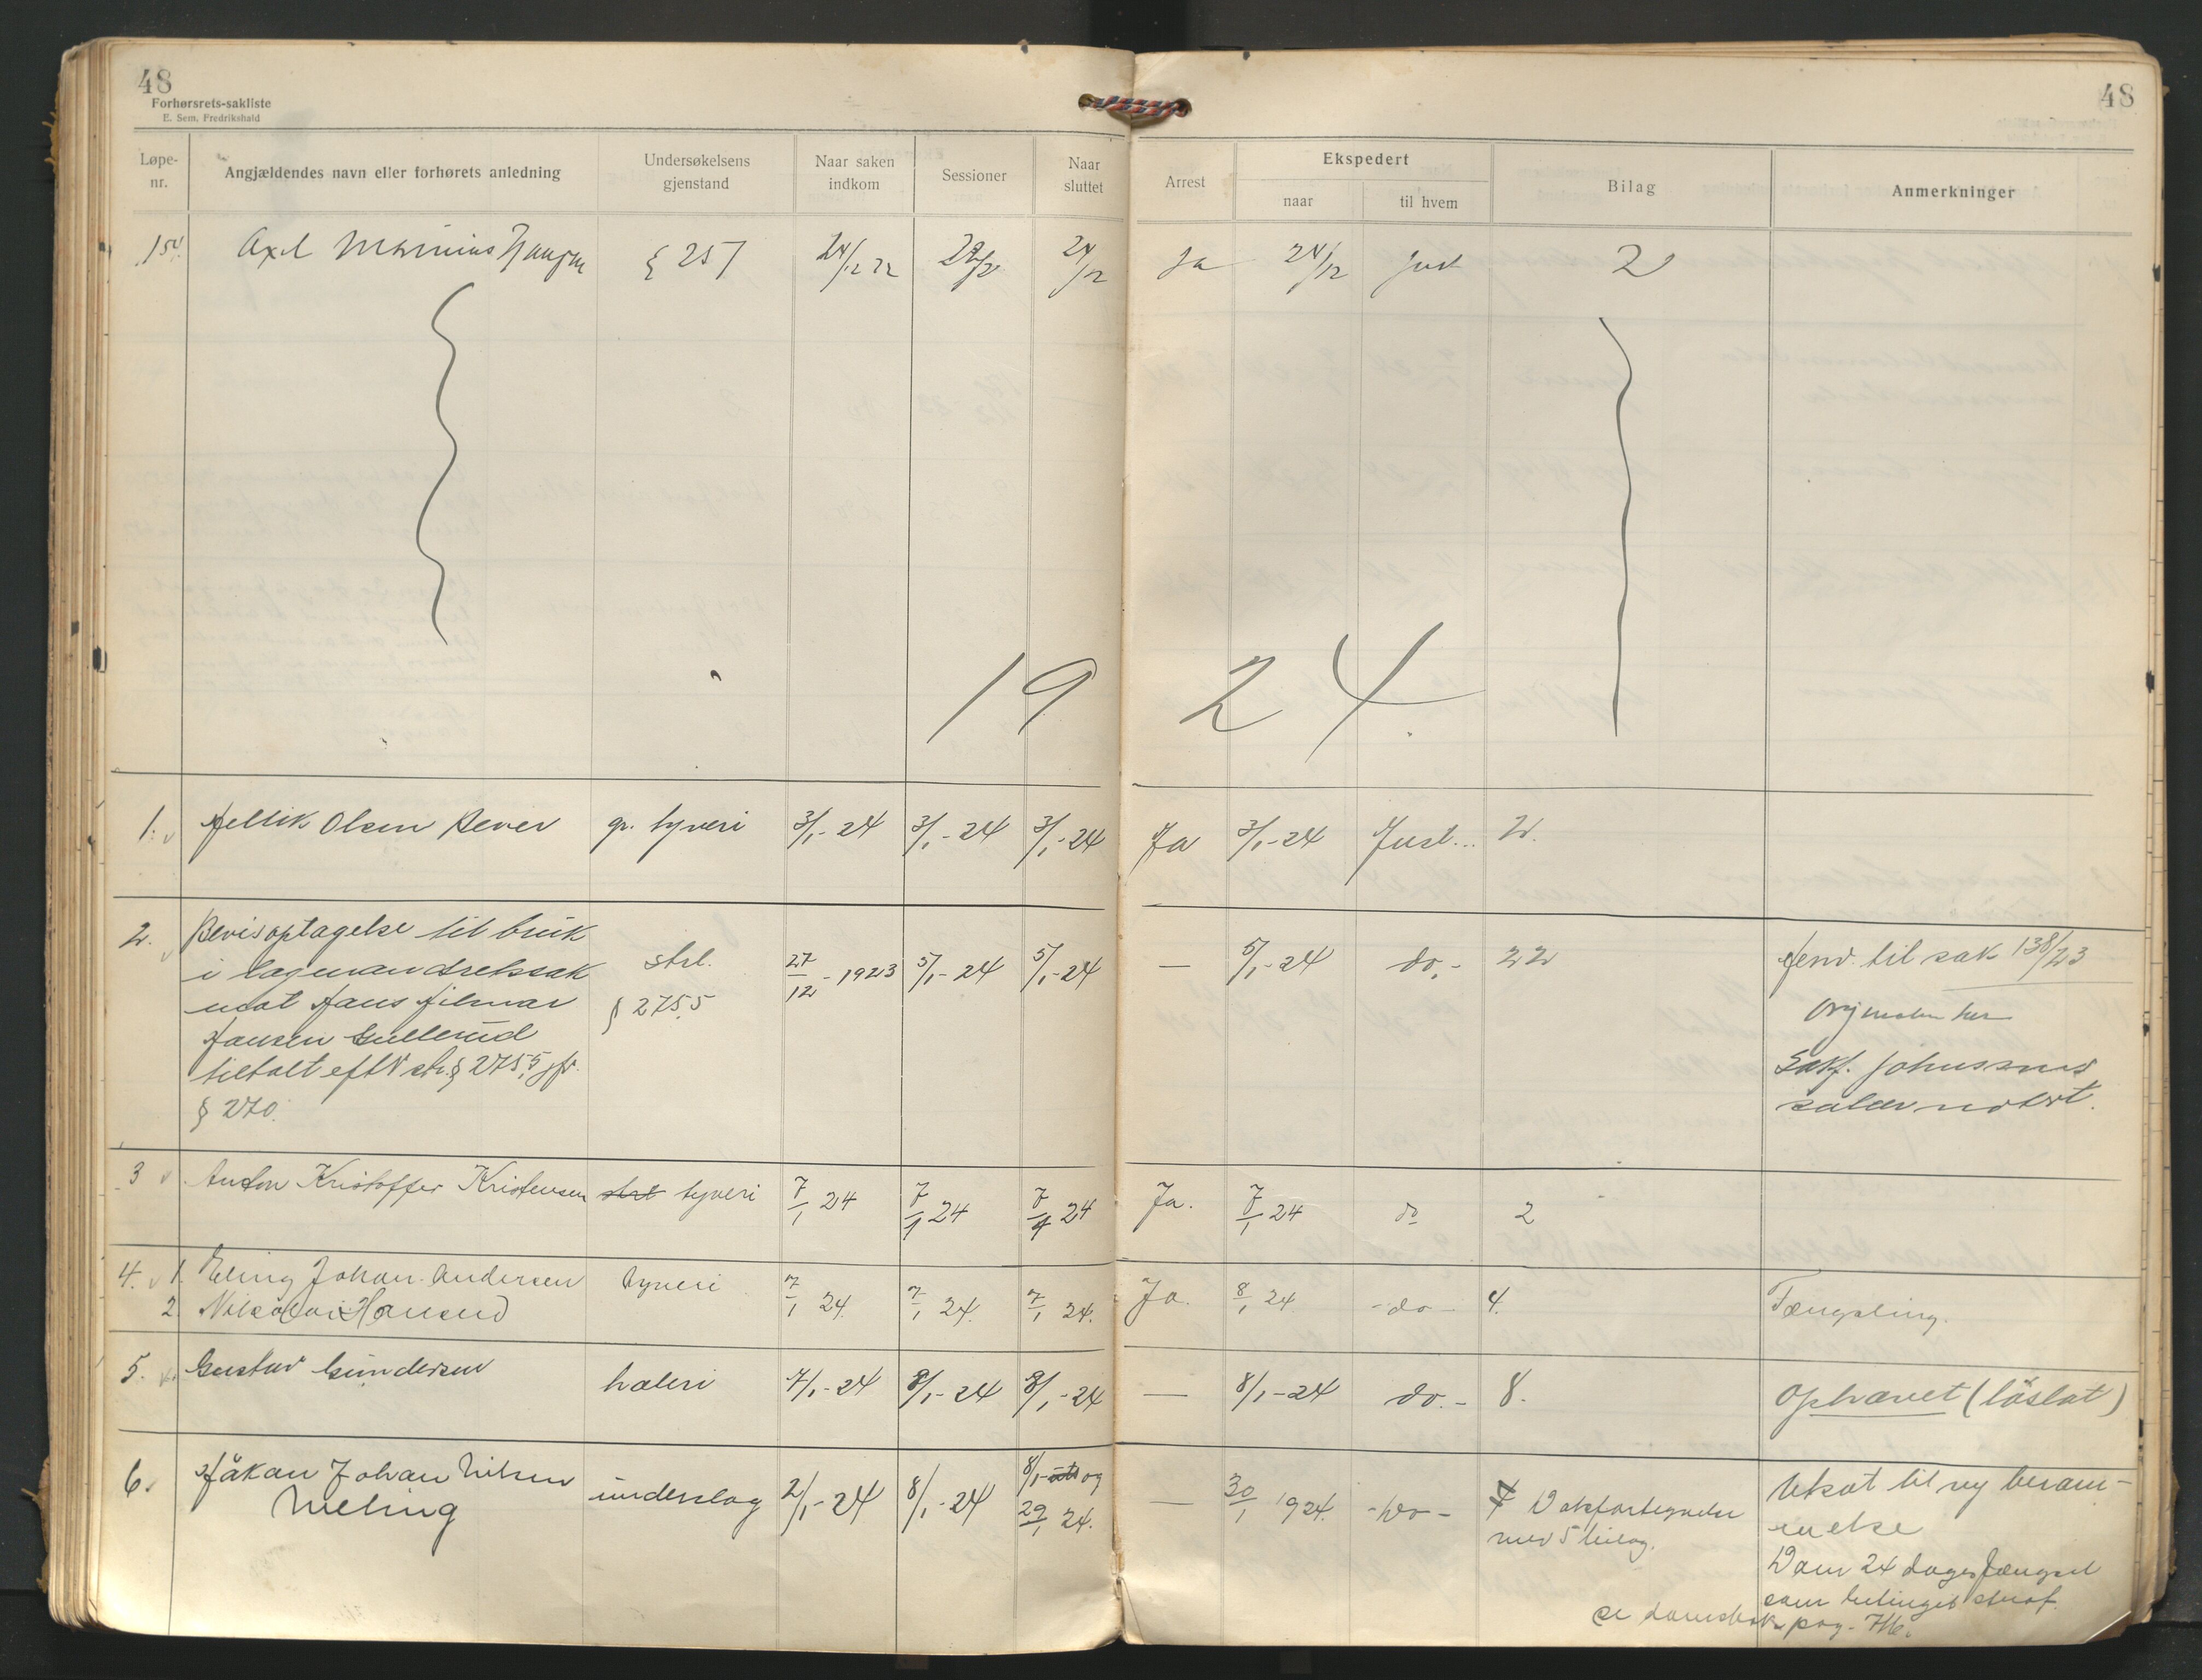 48
Forhørsrets-sakliste
E. Sem, Fredrikshald
48
Løpe-nr.
Angjældendes navn eller forhørets anledning
Undersøkelsens gjenstand
Naar saken indkom
Sessioner
Naar sluttet
Arrest
Ekspedert
naar
til hvem
Bilag
Anmerkninger
Axel Marinius
§ 257
24/12
24/12
Ja
24/12
Just
2
19 24
1. Olsen
gr. tyveri
3/1-24
3/1-24
3/1-24
Ja
3/1-24
Just..
2.
2.
Bevisoptagelse til bruk
i lagmandsretssak
mot Hans Hilmar
Hansen Gullerud
tiltalt efter str. § 275,5 jfr.
§ 270.
strl.
§ 275,5
27/12-1923
5/1-24
5/1-24
—
5/1-24
do.-
22
Henv. til sak 138/23
her
Sakf. Johnssens
salær notert.
3
Anton Kristoffer Kristensen
strl tyveri
7/1 24
7/1 24
7/1 24
Ja.
7/1 24
do
2
4. 1. Eling Johan Andersen
2. Nikolai Hansen
tyveri
7/1 24.
7/1 24.
7/1 24.
Ja.
8/1 24.
-do-
4.
Fængsling.
5.
Gustav Gundersen
heleri
7/1-24
8/1-24
8/1-24
—
8/1-24
do.-
8.
Ophævet (løslat)
6.
Håkan Johan Nilsen
Meling
underslag
2/1-24
8/1-24
8/1- og
29/1 24.
—
30/1 1924.
-do-
Dokfortegnelse
med 5 bilag.
Utsat til ny beram-
melse
Dom 24 dages fængsel
som betinget straf.
se domsbok pag.